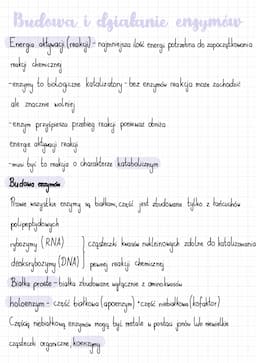 Budowa i działanie enzymów
Energia aktywacji (reakcji) - najmniejsza ilość energii potrzebna do zapoczątkowania
reakcji chemicznej
-enzymy to biologiczne katalizatory - bez enzymów reakcja może zachodzić
ale znacznie wolniej
-enzym przyśpiesza przebieg reakcji ponieważ obniża
energię aktywacji reakcji
-musi być to reakcja o charakterze katabolicznym
Budowa enzymów
Prawie wszystkie enzymy są białkami, część jest zbudowane tylko z łańcuchów
polipeptydowych
rybozymy (RNA) } cząsteczki kwasów nukleinowych zdolne do katalizowania
deoksyrybozymy (DNA) } pewnej reakcji chemicznej
Białka proste - białka zbudowane wyłącznie z aminokwasów
holoenzym - część białkowa (apoenzym) + część niebiałkowa (kofaktor)
Częścią niebiałkową enzymów mogą być metale w postaci jonów lub niewielkie
cząsteczki organiczne, koenzymy